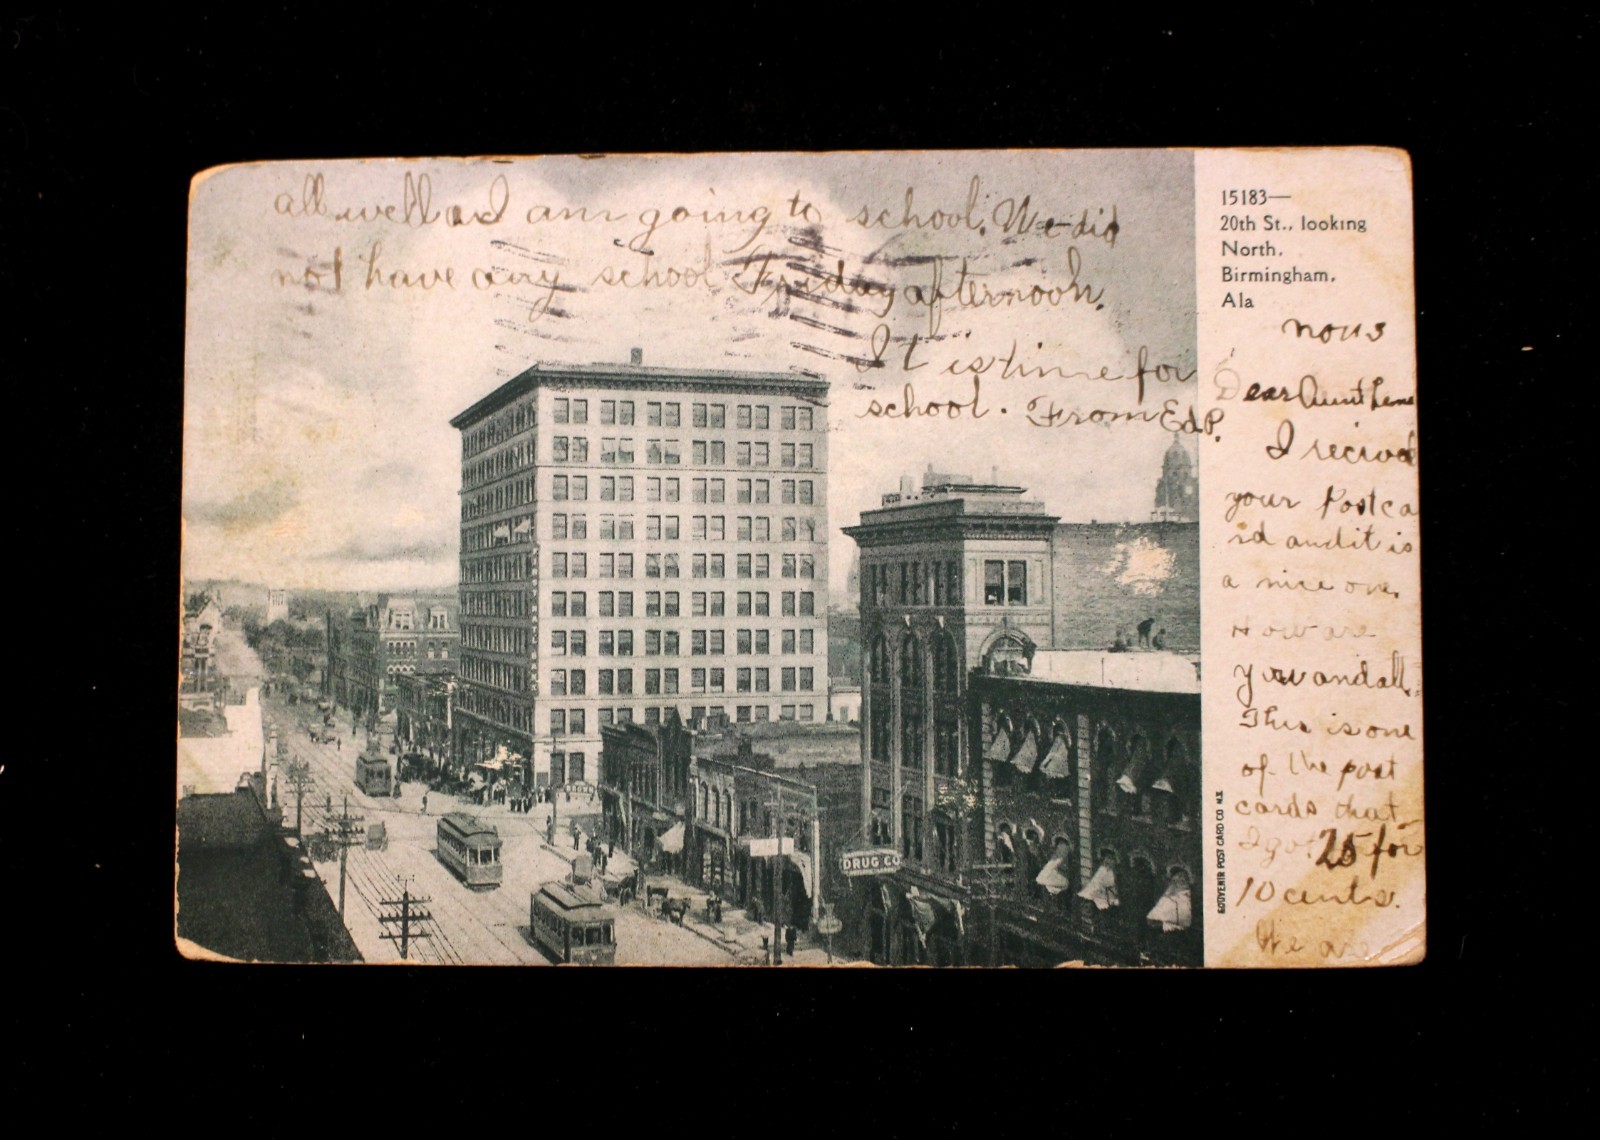 15183—
20th St., looking
North,
Birmingham,
Ala
Nov 3
Dear Aunt
I recived
your Postca
rd and it is
a nice one.
How are
you and all.
This is one
of the post
cards that
I got 25 for
10 cents.
We are
all well and I am going to school. We did
not have any school Friday afternoon.
It is time for
school. From Ed P.
DRUG CO
SOUVENIR POST CARD CO N.Y.